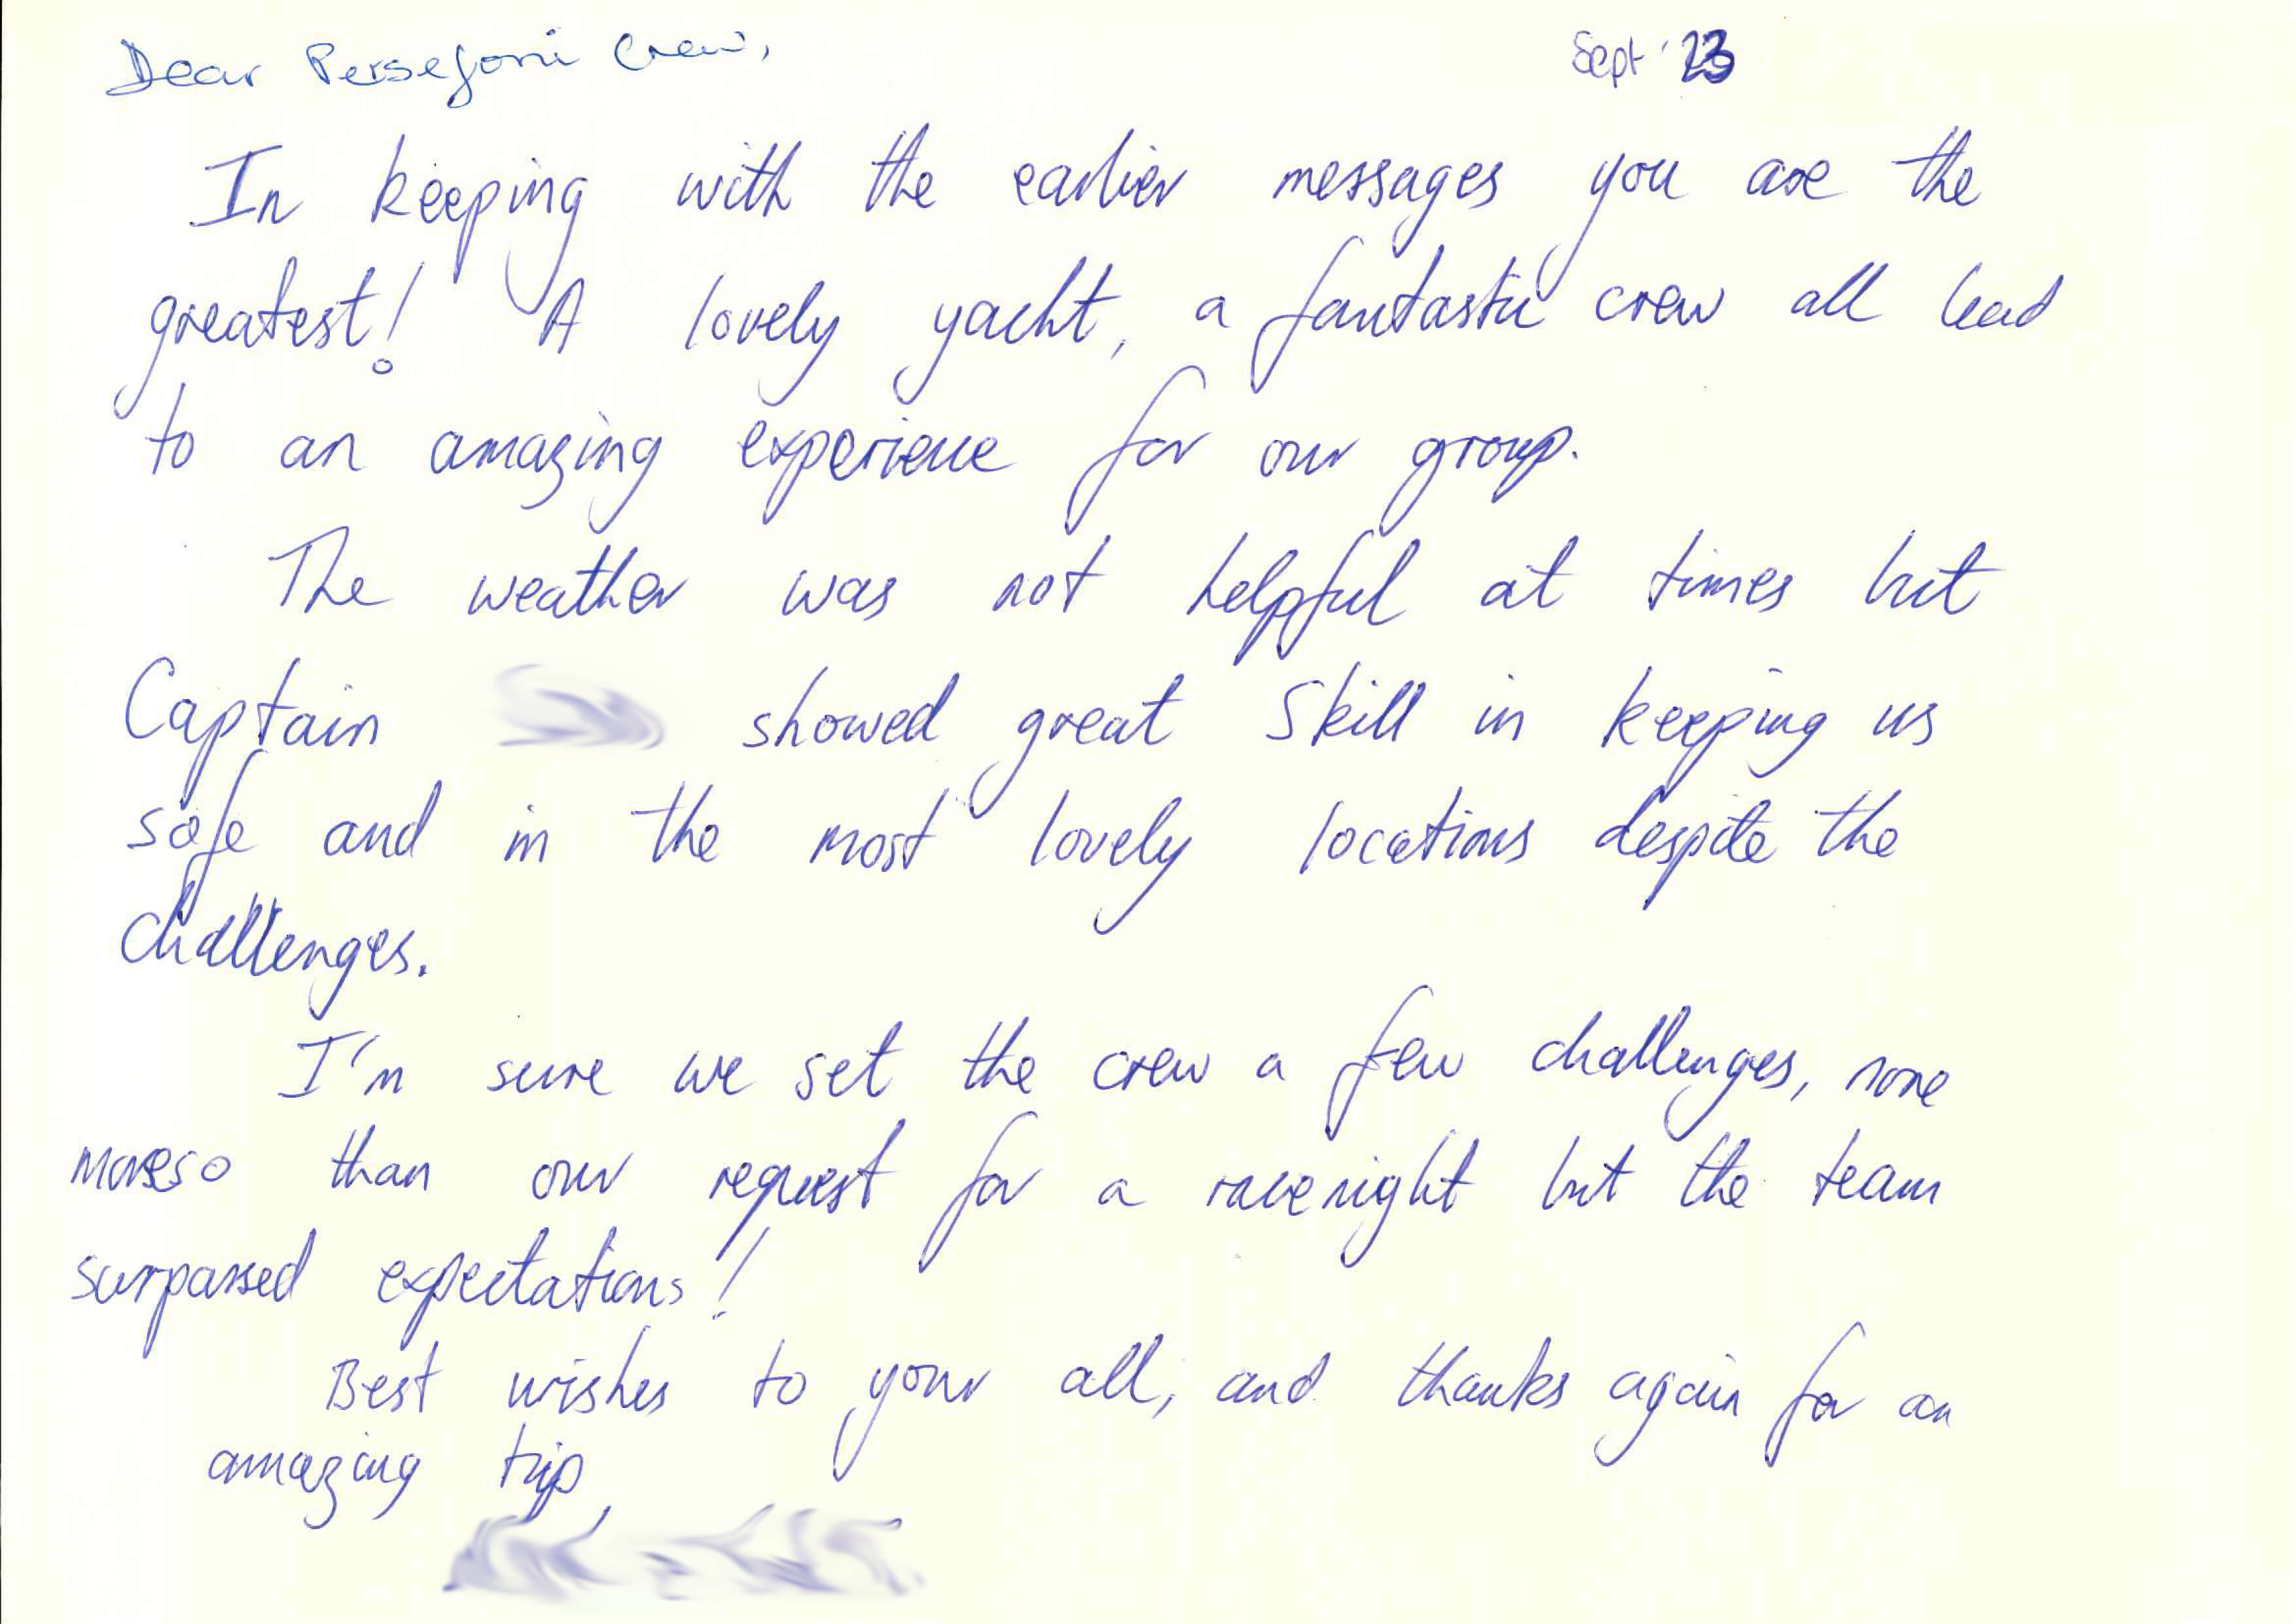 Dear Persefoni Crew,
Sept '23
In keeping with the earlier messages you are the
greatest! A lovely yacht, a fantastic crew all lead
to an amazing experience for our group.
The weather was not helpful at times but
Captain showed great Skill in keeping us
safe and in the most lovely locations despite the
challenges.
I'm sure we set the crew a few challenges, none
moreso than our request for a race night but the team
surpassed expectations!
Best wishes to your all, and thanks again for an
amazing trip,